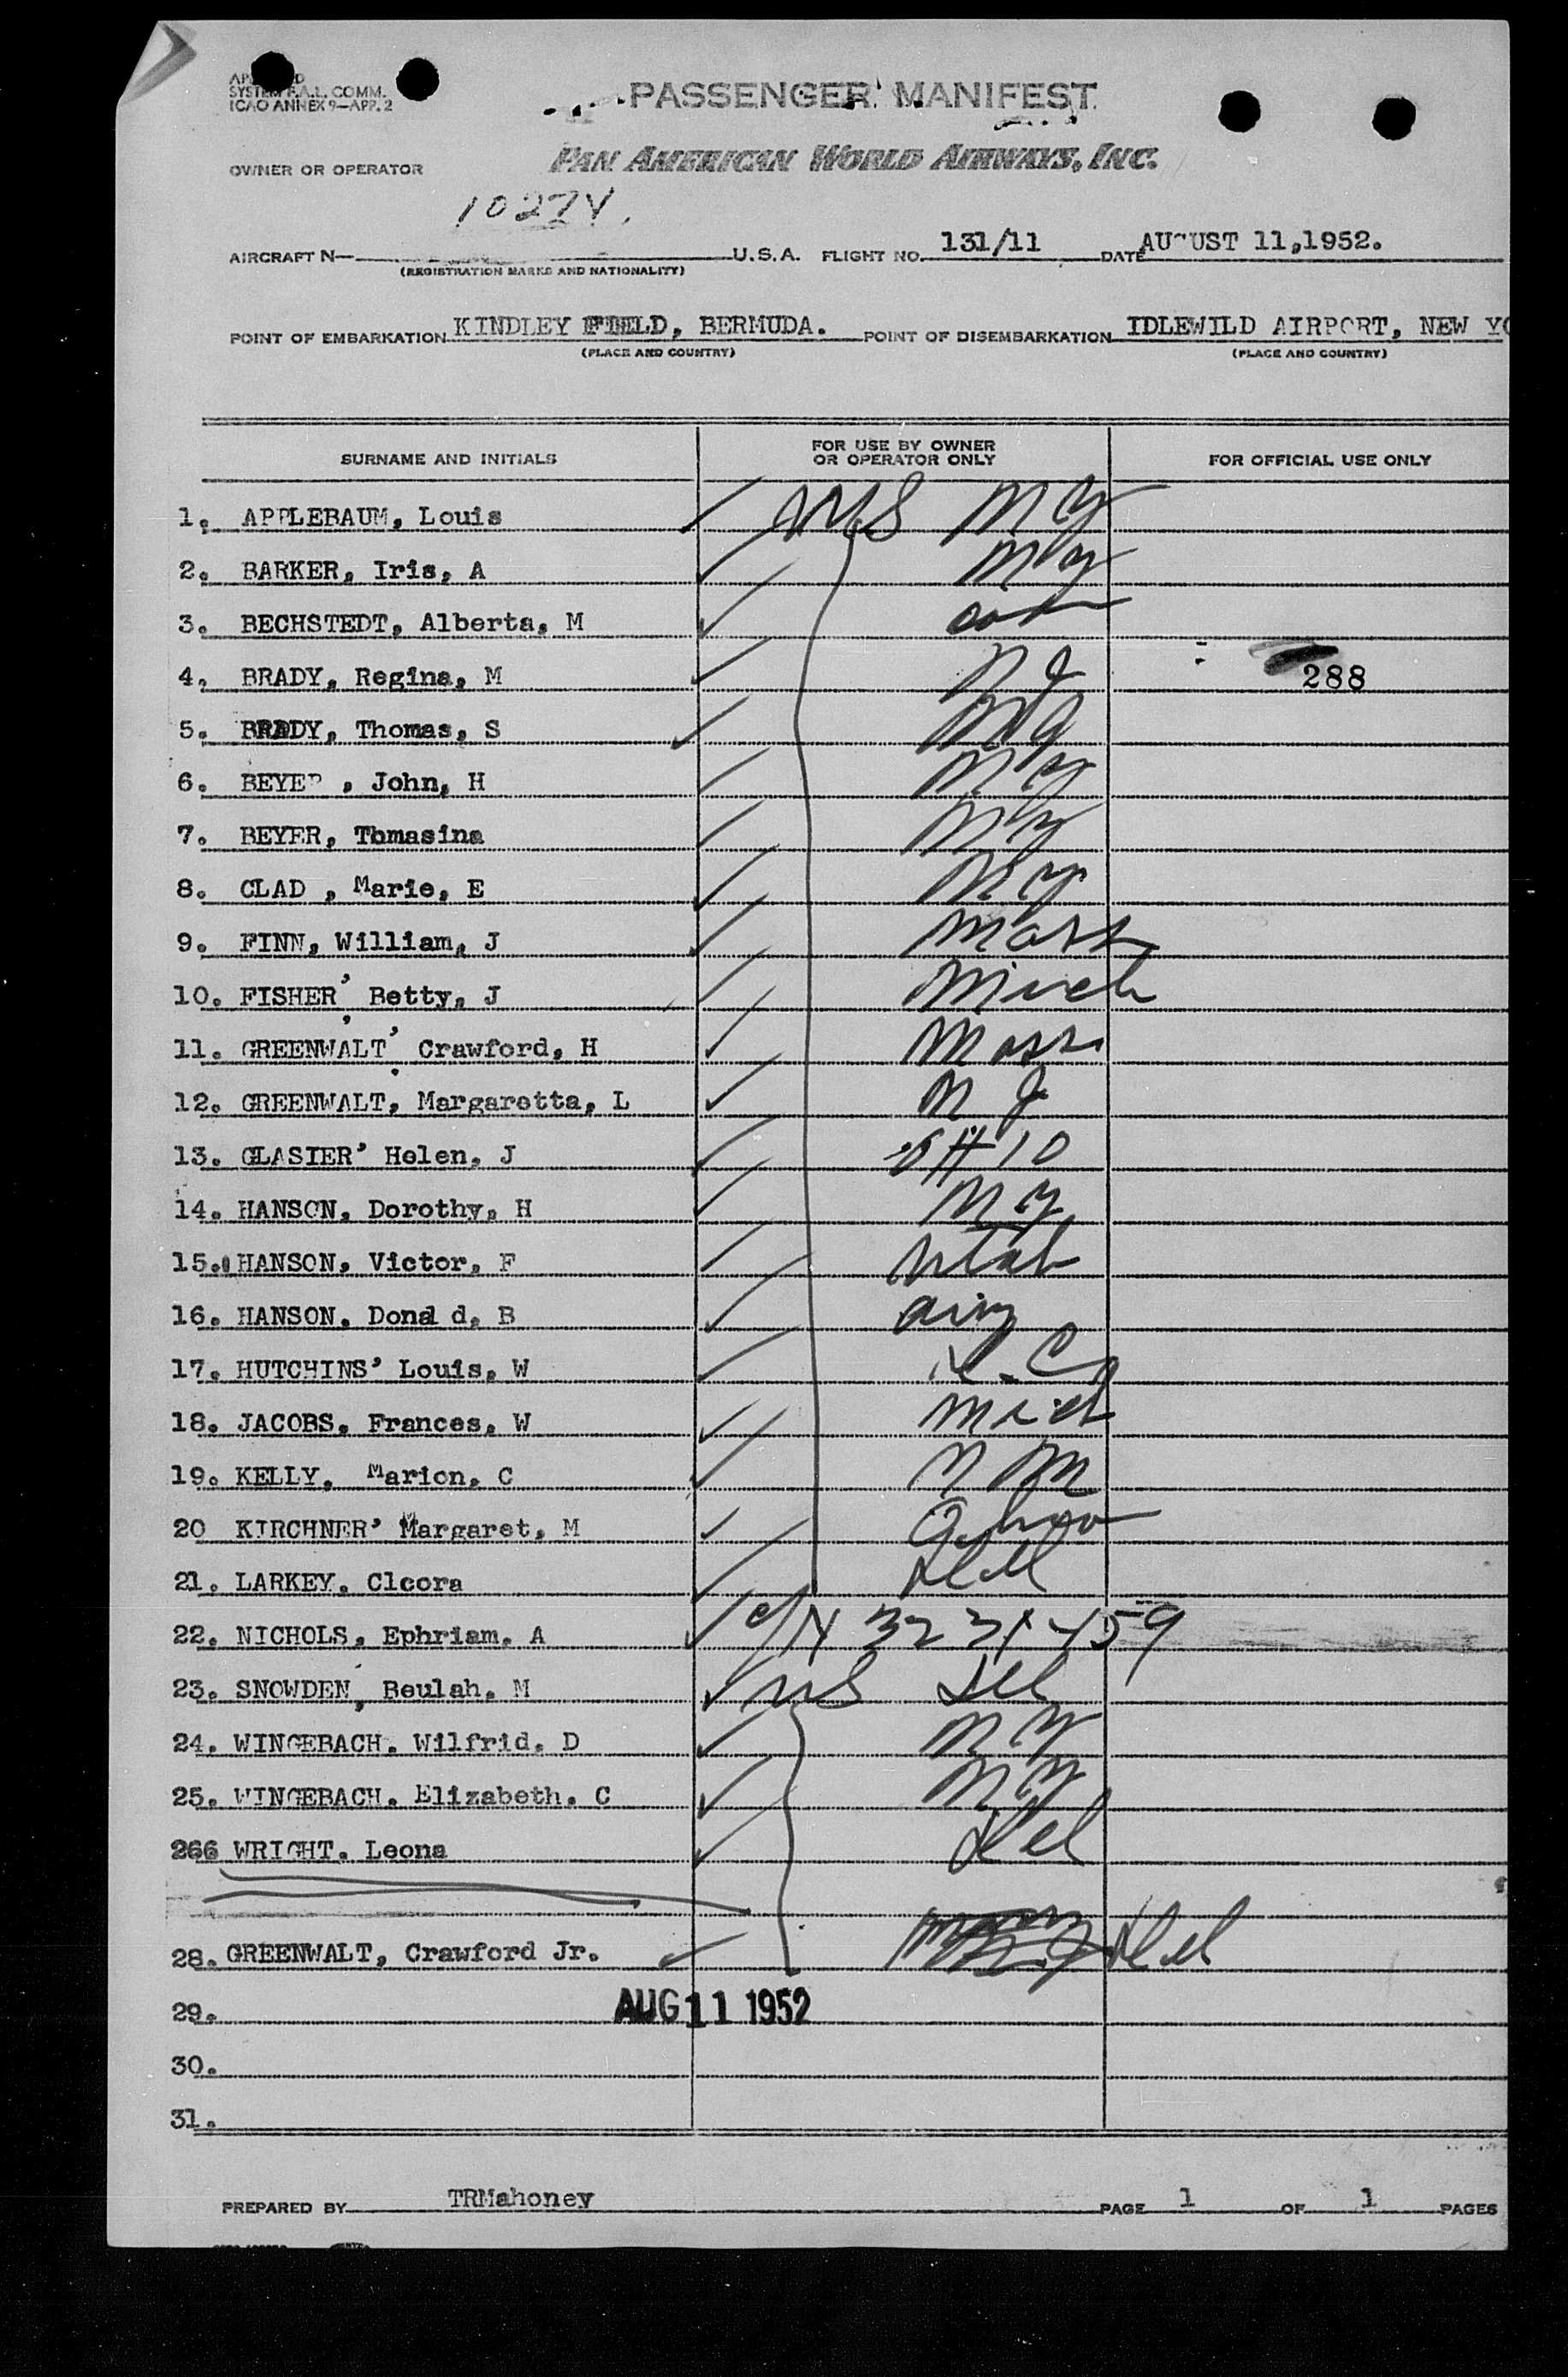 SYSTEM F.A.L. COMM.
ICAO ANNEX 9—APP. 2
PASSENGER MANIFEST
OWNER OR OPERATOR PAN AMERICAN WORLD AIRWAYS, INC.
1027V.
AIRCRAFT N— U.S.A. FLIGHT NO. 131/11 DATE AUGUST 11,1952.
(REGISTRATION MARKS AND NATIONALITY)
POINT OF EMBARKATION KINDLEY FIELD, BERMUDA. POINT OF DISEMBARKATION IDLEWILD AIRPORT, NEW YO
(PLACE AND COUNTRY) (PLACE AND COUNTRY)
SURNAME AND INITIALS FOR USE BY OWNER OR OPERATOR ONLY FOR OFFICIAL USE ONLY
1. APPLEBAUM, Louis NY
2. BARKER, Iris, A NY
3. BECHSTEDT, Alberta, M
4. BRADY, Regina, M NJ 288
5. BRADY, Thomas, S NJ
6. BEYER , John, H NY
7. BEYER, Tomasina NY
8. CLAD , Marie, E NY
9. FINN, William, J Mass
10. FISHER' Betty, J Mich
11. GREENWALT' Crawford, H Mass
12. GREENWALT, Margaretta, L NJ
13. GLASIER' Helen, J OH10
14. HANSON, Dorothy, H NY
15. HANSON, Victor, F Utah
16. HANSON. Donald d. B
17. HUTCHINS' Louis, W D.C.
18. JACOBS. Frances, W Mich
19. KELLY. Marion, C NM
20 KIRCHNER' Margaret, M
21. LARKEY. Cleora Del
22. NICHOLS, Ephriam. A
23. SNOWDEN, Beulah. M US Del
24. WINGEBACH. Wilfrid. D NY
25. WINGEBACH. Elizabeth. C NY
266 WRIGHT. Leona Del
28. GREENWALT, Crawford Jr. Del
AUG 11 1952
29.
30.
31.
PREPARED BY TRMahoney PAGE 1 OF 1 PAGES